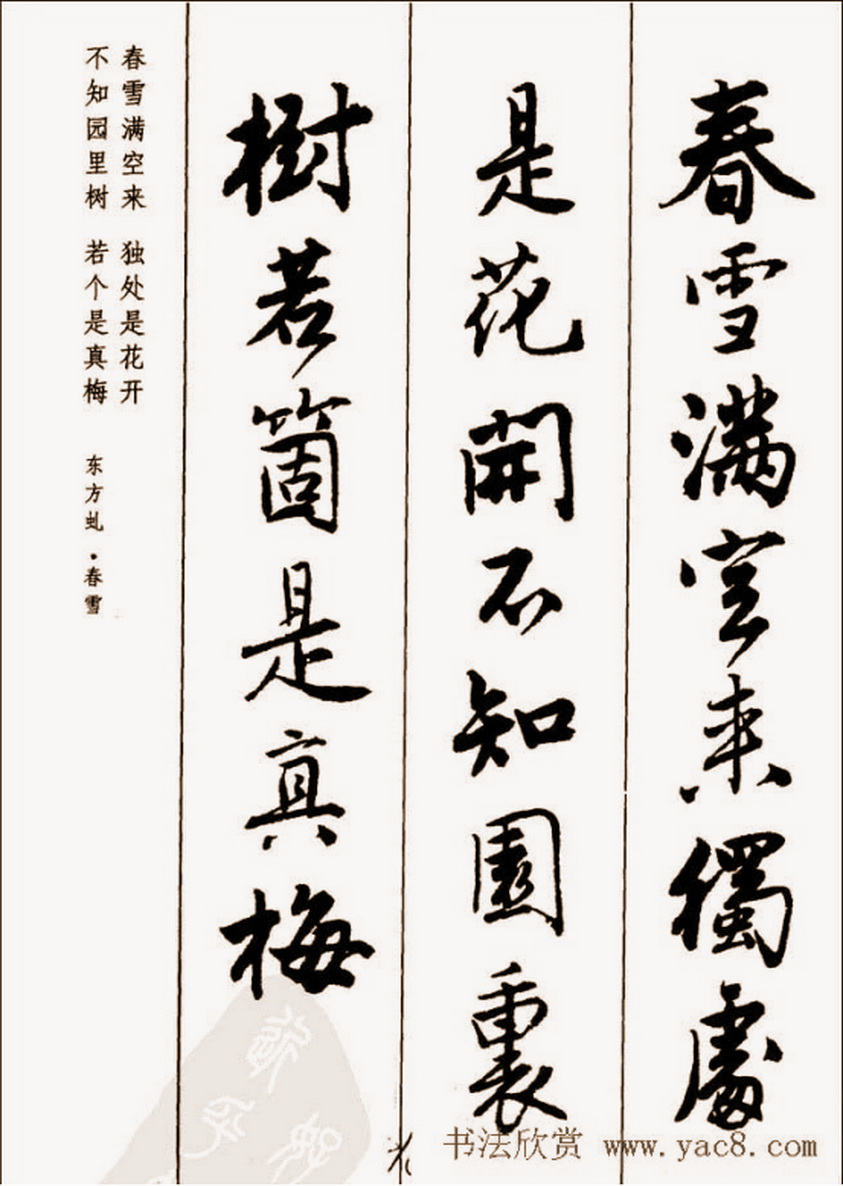 春雪满空来獨處
是花開不知園裏
樹若箇是真梅
春雪满空来 独处是花开
不知园里树 若个是真梅
东方虬·春雪
书法欣赏 www.yac8.com